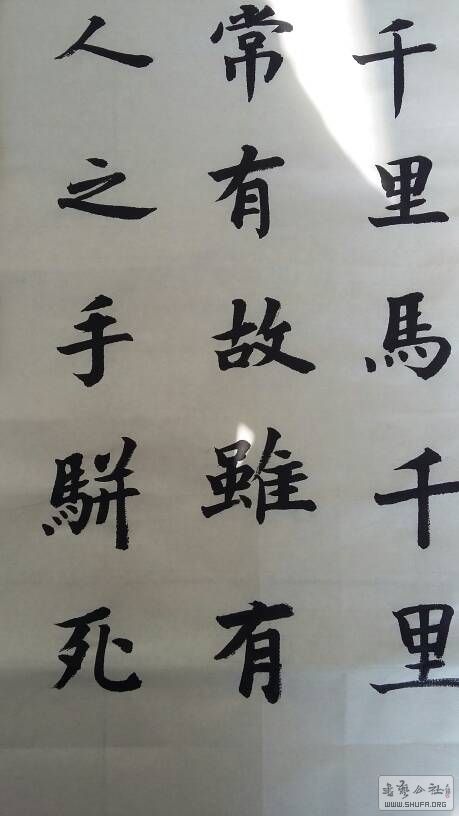 千里馬千里
常有故雖有
人之手駢死
书艺公社
WWW.SHUFA.ORG